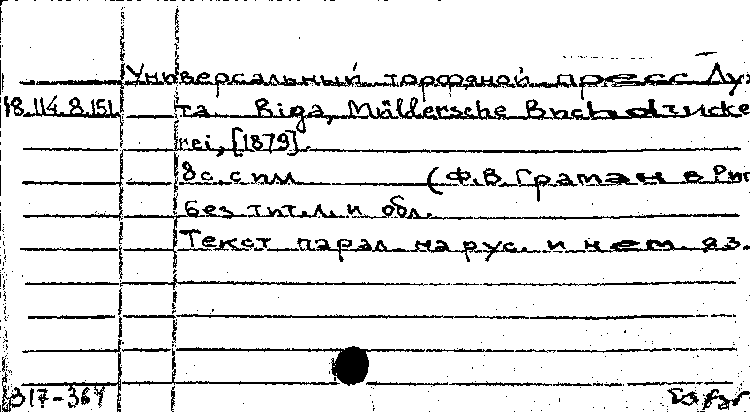 Универсальный торфяной пресс Лу
18.114.8.151. та. Riga, Müllersche Buchdrucke
rei, [1879].
8с. с илл. (Ф.В. Граман в Риг
Без тит. л. и обл.
Текст парал. на рус. и нем. яз.
317-364